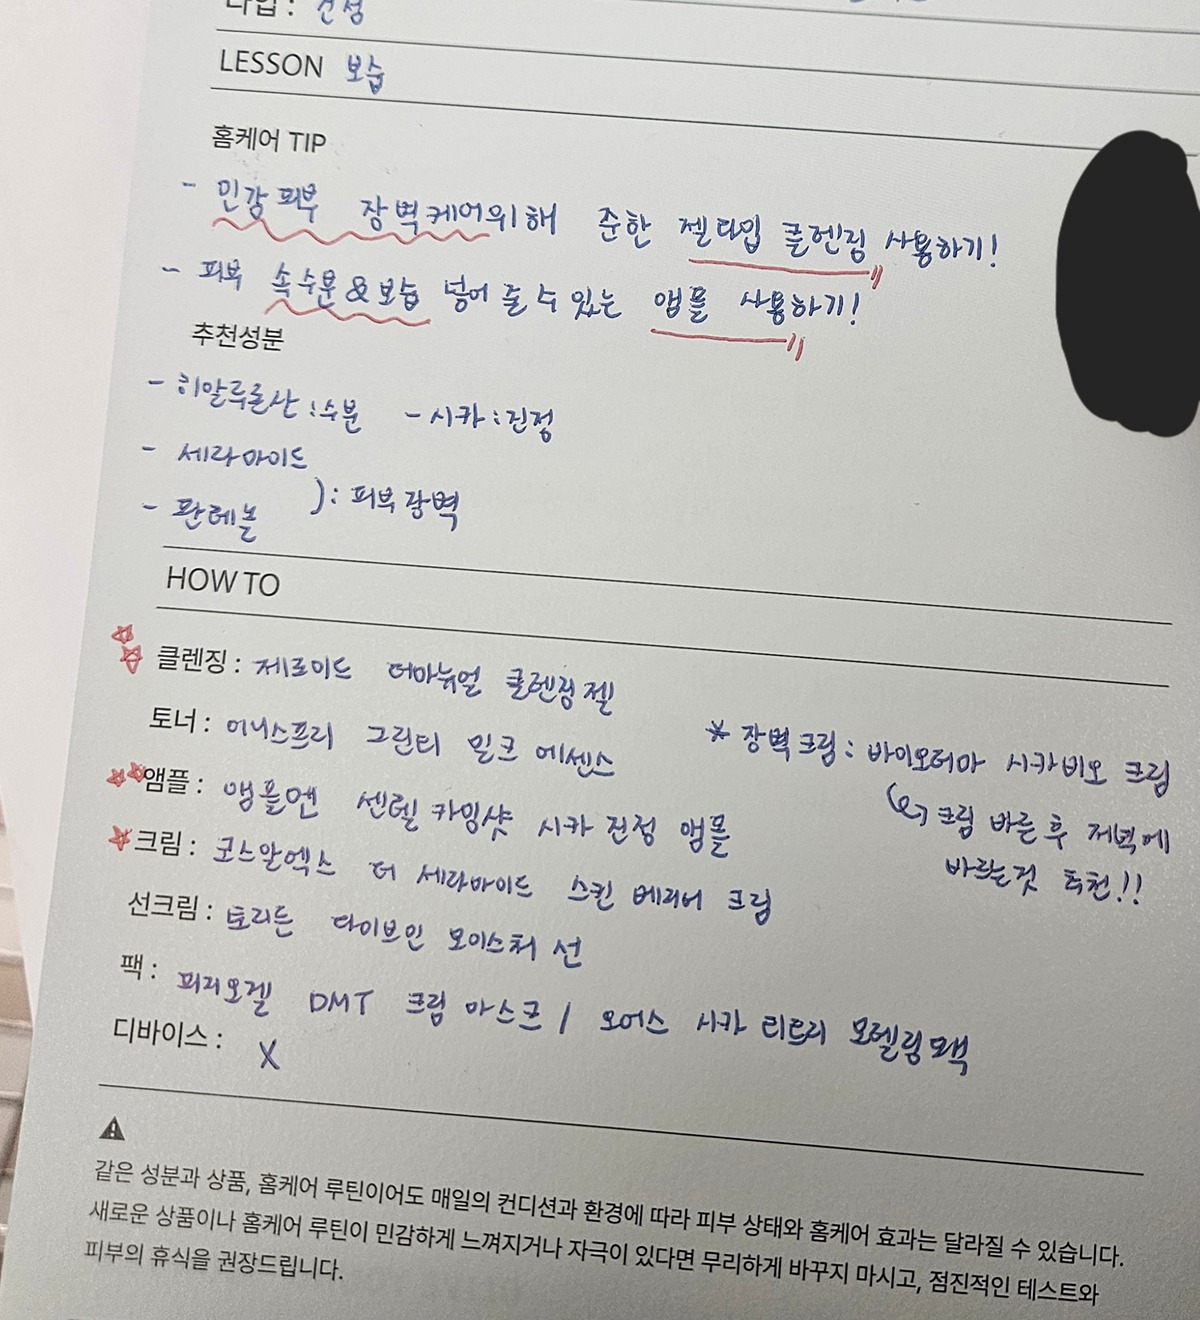 타입 : 건성
LESSON 보습
홈케어 TIP
- 민감피부 장벽케어위해 순한 젤타입 클렌징 사용하기!
- 피부 속수분&보습 넣어 줄 수 있는 앰플 사용하기!
추천성분
- 히알루론산 : 수분 - 시카 : 진정
- 세라마이드
- 판테놀 ) : 피부장벽
HOW TO
클렌징 : 제로이드 더마뉴얼 클렌징젤
토너 : 이니스프리 그린티 밀크 에센스
* 장벽크림 : 바이오더마 시카비오 크림
크림 바른 후 저녁에
바르는것 추천!!
앰플 : 앰플엔 센텔 카밍샷 시카 진정 앰플
크림 : 코스알엑스 더 세라마이드 스킨 베리어 크림
선크림 : 토리든 다이브인 모이스처 선
팩 : 피지오겔 DMT 크림 마스크 / 오어스 시카 티트리 모델링팩
디바이스 : X
같은 성분과 상품, 홈케어 루틴이어도 매일의 컨디션과 환경에 따라 피부 상태와 홈케어 효과는 달라질 수 있습니다.
새로운 상품이나 홈케어 루틴이 민감하게 느껴지거나 자극이 있다면 무리하게 바꾸지 마시고, 점진적인 테스트와
피부의 휴식을 권장드립니다.